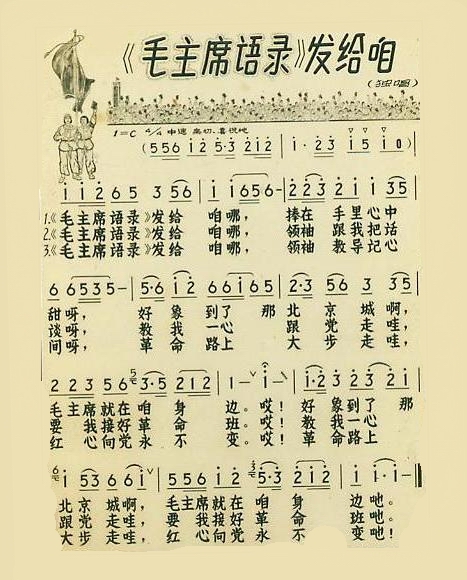 《毛主席语录》发给咱
(独唱)
1=C 4/4 中速 亲切、喜悦地
(5561̇ 2̇5̇·3̇2̇1̇2̇ | 1̇·2̇3̇ 1̇51̇0)
1̇1̇265 356 | 1̇1̇656- | 2̇2̇3̇2̇1̇2̇1̇ 35
1.《毛主席语录》发给 咱哪, 捧在 手里心中
2.《毛主席语录》发给 咱哪, 领袖 跟我把话
3.《毛主席语录》发给 咱哪, 领袖 教导记心
6 66535- | 5·61̇2̇ 6561̇2̇ | 2̇·3̇56 5̇3̇5̇
甜呀, 好象到了那 北京城啊,
谈呀, 教我一心 跟党走哇,
间呀, 革命路上 大步走哇,
2̇2̇1̇2̇2̇6 3·5 2̇1̇2̇ | 1̇- 1̇- | 1̇·2̇3̇ 2̇3̇2̇1̇
毛主席就在咱身 边。哎!好象到了那
要我接好革命 班。哎!教我一心
红心向党永不 变。哎!革命路上
61̇ 53661̇ | 5561̇ 2̇3̇·5̇2̇1̇2̇ | 1̇1̇·1̇-
北京城啊, 毛主席就在咱身 边吔。
跟党走哇, 要我接好革命 班吔。
大步走哇, 红心向党永不 变吔!